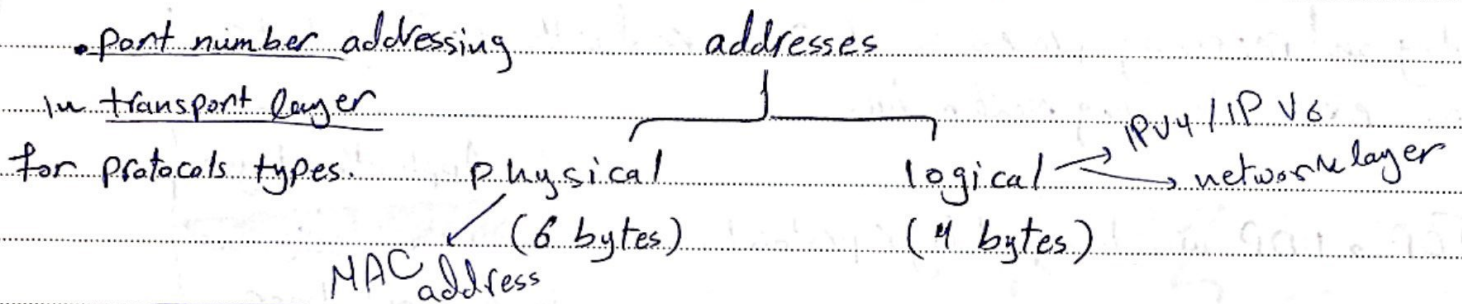 • port number addressing
in transport layer
for protocols types.
addresses
physical
(6 bytes)
MAC address
logical
(4 bytes)
IPV4 / IP V6
network layer